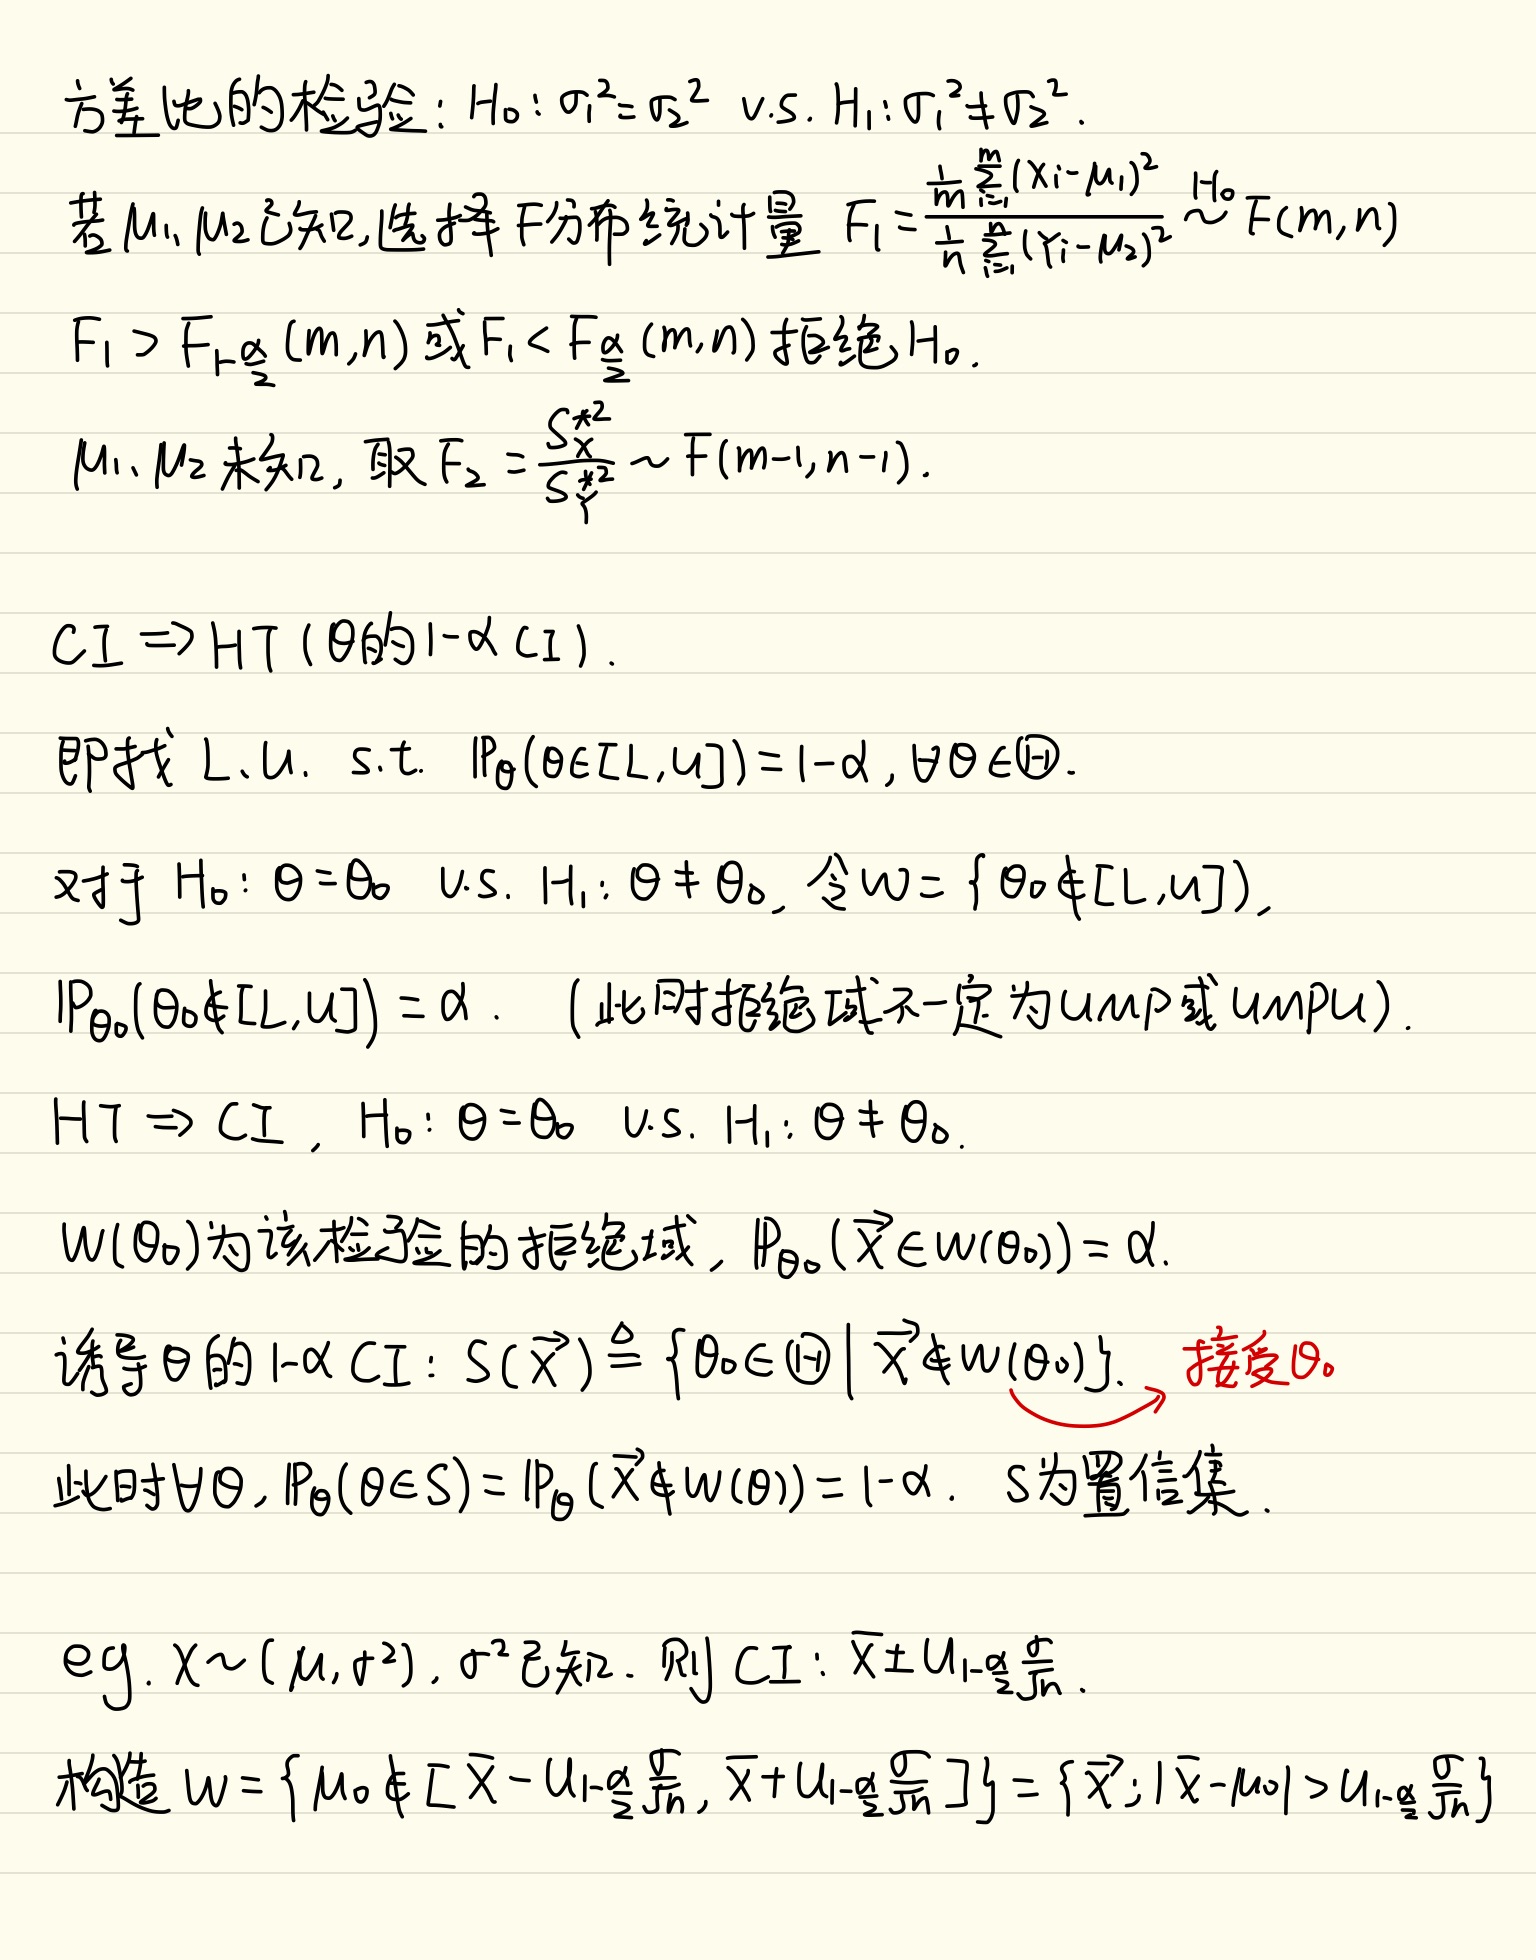 方差比的检验: H₀: σ₁²=σ₂² v.s. H₁: σ₁²≠σ₂².
若 μ₁、μ₂已知,选择 F分布统计量 F₁ = \frac{\frac{1}{m}\sum_{i=1}^{m}(Xi-μ₁)²}{\frac{1}{n}\sum_{i=1}^{n}(Yi-μ₂)²} \overset{H₀}{\sim} F(m,n)
F₁ > F_{1-\frac{α}{2}}(m,n) 或 F₁ < F_{\frac{α}{2}}(m,n) 拒绝H₀.
μ₁、μ₂ 未知, 取 F₂ = \frac{S_X^{*2}}{S_Y^{*2}} ~ F(m-1,n-1).
CI ⇒ HT (θ的1-α CI).
即找 L、U. s.t. ℙ_θ(θ∈[L,U]) = 1-α, ∀θ∈Θ.
对于 H₀: θ=θ₀ v.s. H₁: θ≠θ₀, 令W = {θ₀∉[L,U]),
ℙ_{θ₀}(θ₀∉[L,U]) = α. (此时拒绝域不一定为UMP或UMPU).
HT ⇒ CI, H₀: θ=θ₀ v.s. H₁: θ≠θ₀.
W(θ₀)为该检验的拒绝域, ℙ_{θ₀}(\vec{X}∈W(θ₀)) = α.
诱导θ的 1-α CI: S(\vec{X}) ≜ {θ₀∈Θ | \vec{X}∉W(θ₀)}. 接受θ₀
此时∀θ, ℙ_θ(θ∈S) = ℙ_θ(\vec{X}∉W(θ)) = 1-α. S为置信集.
eg. X~(μ,σ²), σ²已知. 则 CI: \bar{X}±U_{1-\frac{α}{2}}\frac{σ}{\sqrt{n}}.
构造 W = {μ₀∉[\bar{X}-U_{1-\frac{α}{2}}\frac{σ}{\sqrt{n}}, \bar{X}+U_{1-\frac{α}{2}}\frac{σ}{\sqrt{n}}]} = {\vec{X}; |\bar{X}-μ₀| > U_{1-\frac{α}{2}}\frac{σ}{\sqrt{n}}}